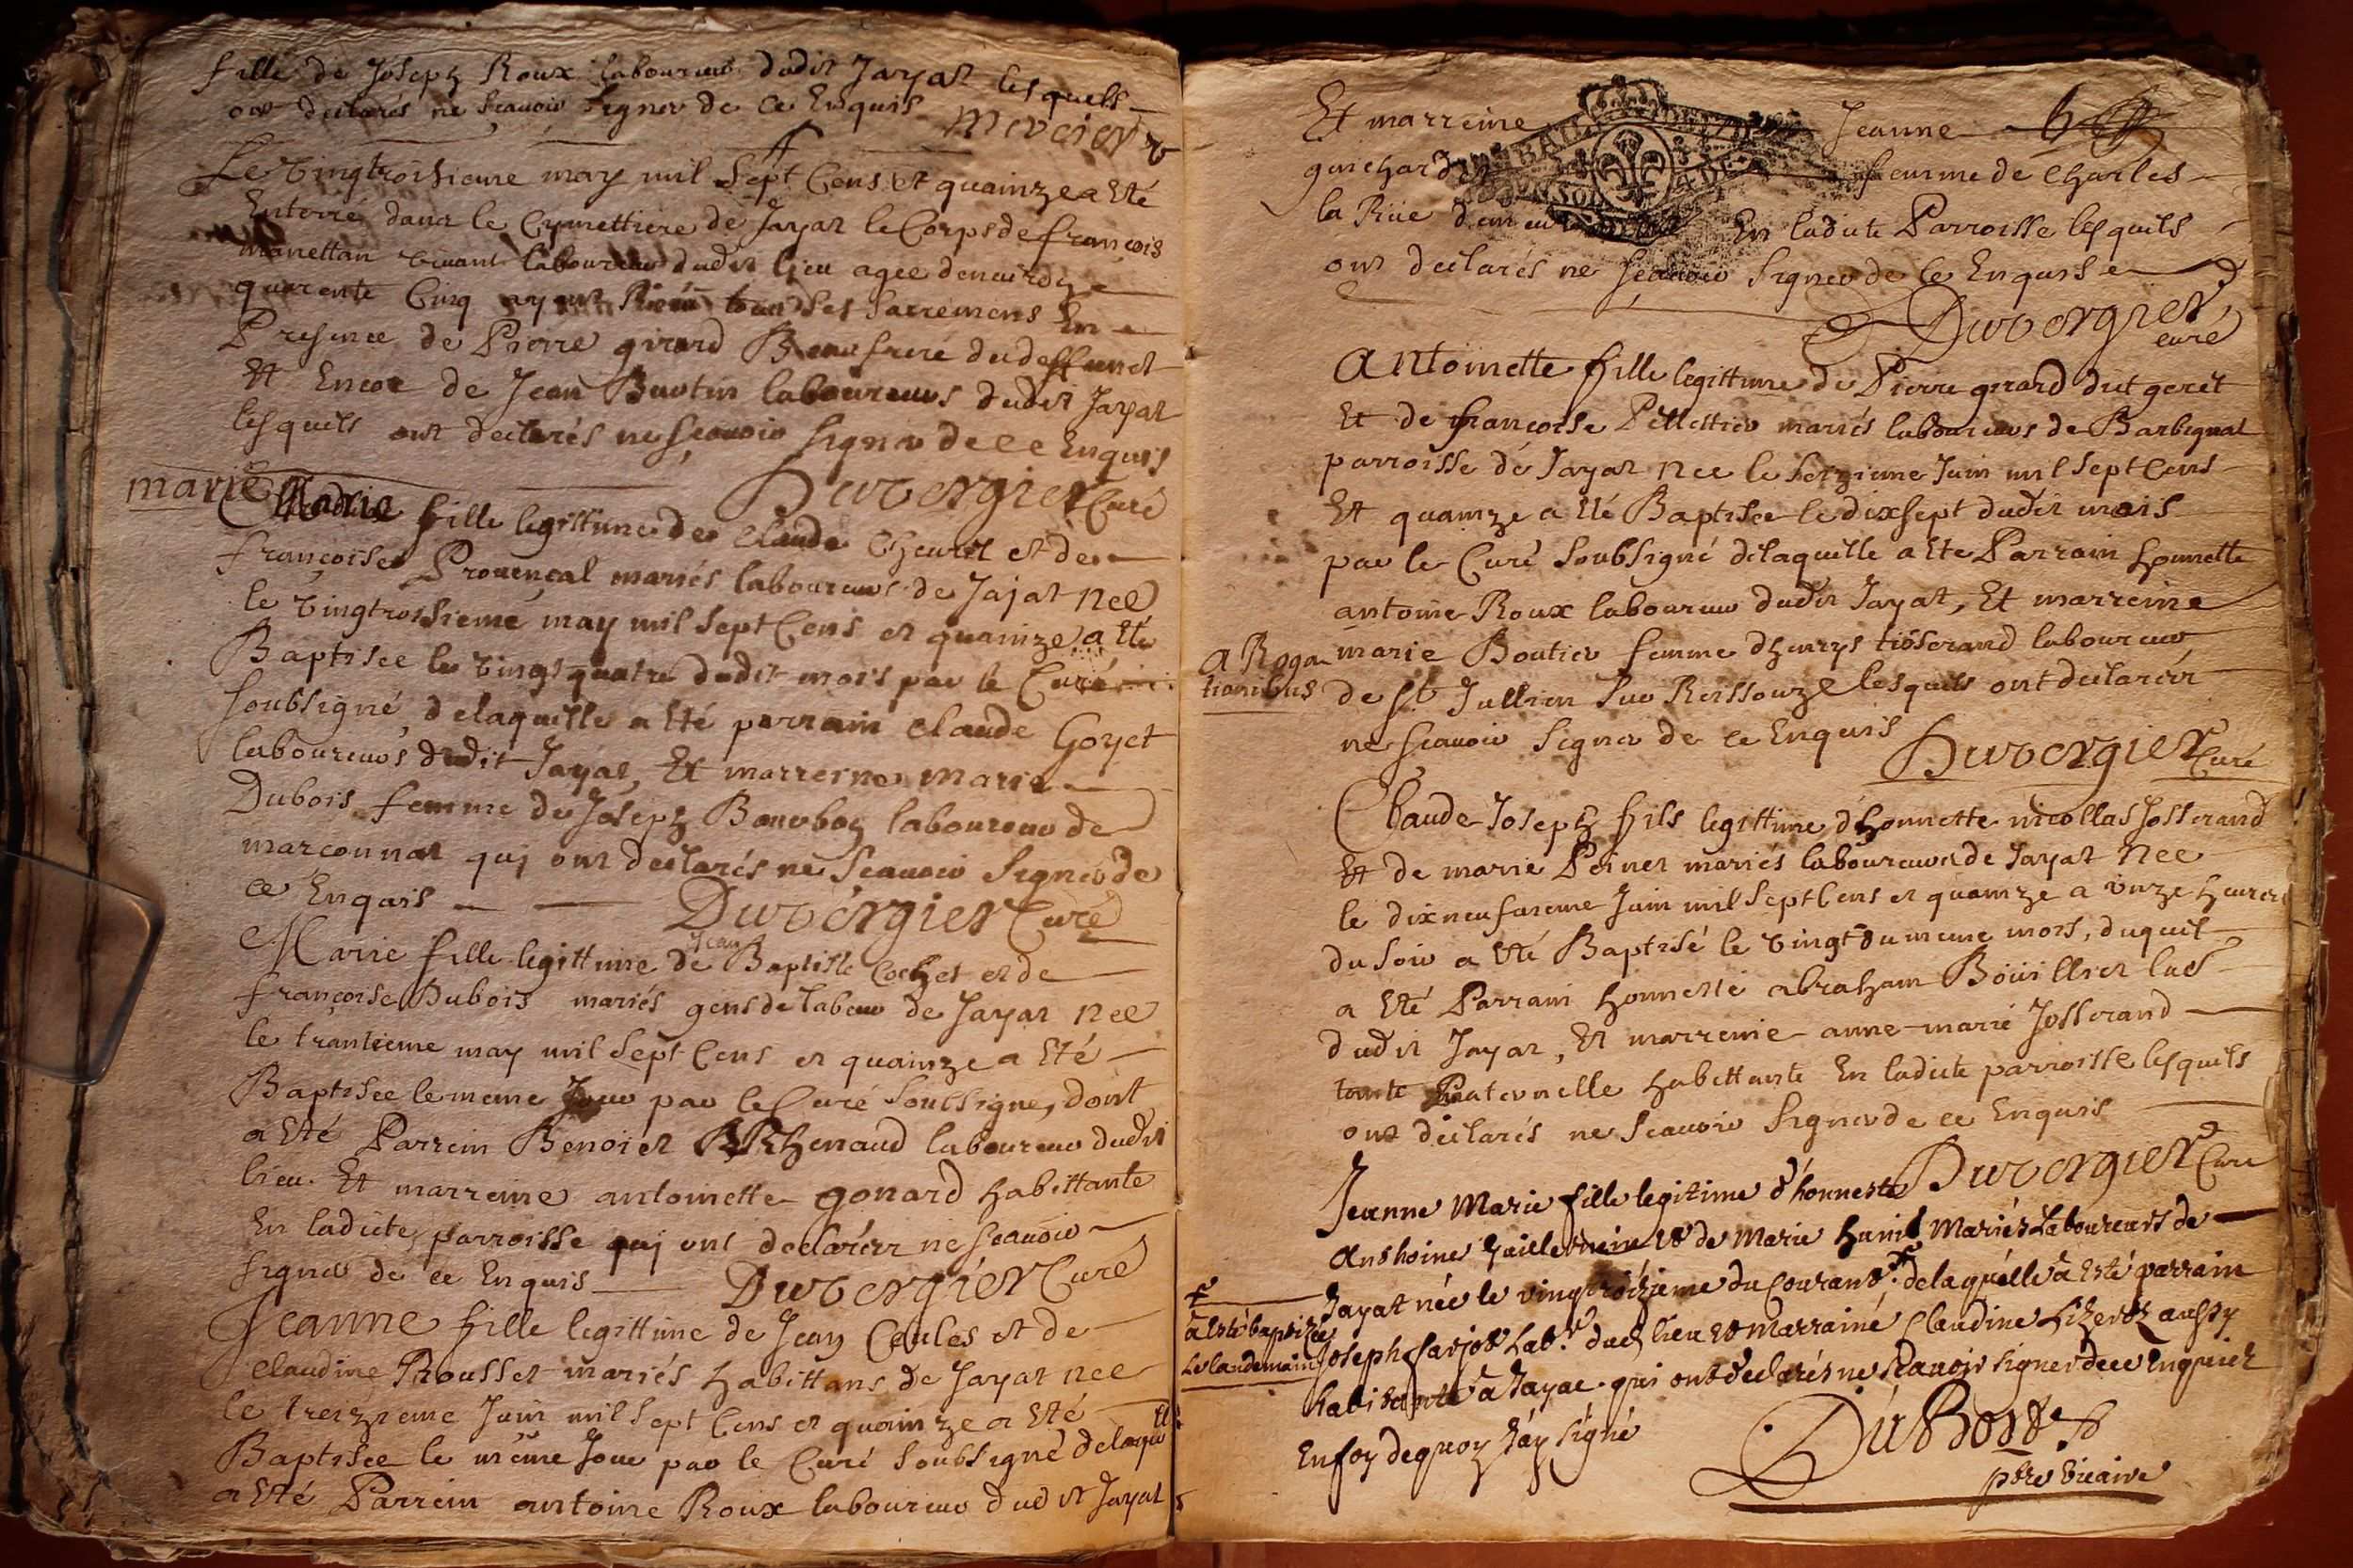 fille de Joseph Roux laboureur dudit Jayat lesquels
ont declarés ne scauoir signer de ce Enquis Mercier
Le vingtroisieme may mil sept Cens et quainze a Eté
Enterré dans le Cymettiere de Jayat le Corps de françois
manettan viuant laboureur dudit lieu agee denuiron
quarente Cinq ayant Receu tous ses sacremens En
Presence de Pierre girard Beaufrere du deffunct
Et Encor de Jean Buotin laboureurs dudit Jayat
lesquels ont declarés ne scauoir signer de ce Enquis
Duvergier Curé
marie
Marie fille legittime de Claude Cheuril et de
françoise Prouençal mariés laboureurs de Jajat née
le vingtroisieme may mil sept Cens et quainze a Eté
Baptisee le vingtquatre dudit mois par le Curé
soubsigné delaquelle a Eté parrain Claude Goyet
laboureurs dudit Jayat, Et marreine Marie
Dubois femme de Joseph Bonobog laboureur de
marconnat quj ont declarés ne scauoir signer de
ce Enquis Duvergier Curé
Jean
Marie fille legittime de Baptiste Cochet et de
françoise Dubois mariés gens de labeur de Jayat née
le trantieme may mil sept Cens et quainze a Eté
Baptisee le meme Jour par le Curé soubsigne, dont
a Eté Parrein Benoict Rhenaud laboureur dudit
lieu. Et marreine antoinette gonard habittante
En ladicte parroisse quj ont declarér ne scauoir
signer de ce Enquis Duvergier Curé
Jeanne fille legittime de Jean Ceules et de
Claudine Rousset mariés habittans de Jayat née
le treizieme Juin mil sept Cens et quainze a Eté
Baptisee le même Jour par le Curé soubsigné delaquelle
a Eté Parrein antoine Roux laboureur dudit Jayat
Et marreine Jeanne
guichard femme de Charles
la Rüe En ladicte Parroisse lesquels
ont declarés ne scauoir signer de ce Enquis
Duvergier
curé
Antoinette fille legittime de Pierre girard dict geret
Et de françoise Pellettier mariés laboureurs de Barbignat
parroisse de Jayat née le seizieme Juin mil sept Cens
Et quainze a Eté Baptisee le dixsept dudit mois
par le Curé soubsigné delaquelle a Ete Parrain honnette
antoine Roux laboureur dudit Jayat, Et marreine
A Roga
tionibus
marie Boutier femme dhenrys tisserand laboureur
de St. Jullien sur Reissouze lesquels ont declarér
ne scauoir signer de ce Enquis
Duvergier Curé
Claude Joseph fils legittime d'honnette nicollas Josserand
Et de marie Peinet mariés laboureurs de Jayat née
le dixneufuieme Juin mil sept Cens et quainze a onze heures
du soir a Eté Baptisé le vingt du meme mois, duquel
a Eté Parrain honneste abraham Boüillier
dudit Jayat, Et marreine anne-marie Josserand
tante Paternelle habittante En ladicte parroisse lesquels
ont declarés ne scauoir signer de ce Enquis
Duvergier Curé
Jeanne Marie fille legitime d'honneste
Anthoine Guillermin et de Marie hunit Mariés Laboureurs de
Jayat née le vingtroizieme du Courant. delaquelle à Esté parrain
à Esté baptizée
Le landemain
Joseph farjot Labr. dud. lieu et Marraine Claudine aussy
habitante à Jayat. qui ont declarés ne scauoir signer de ce Enquis
En foy dequoy J'ay signé
DuBost
pbre vicaire